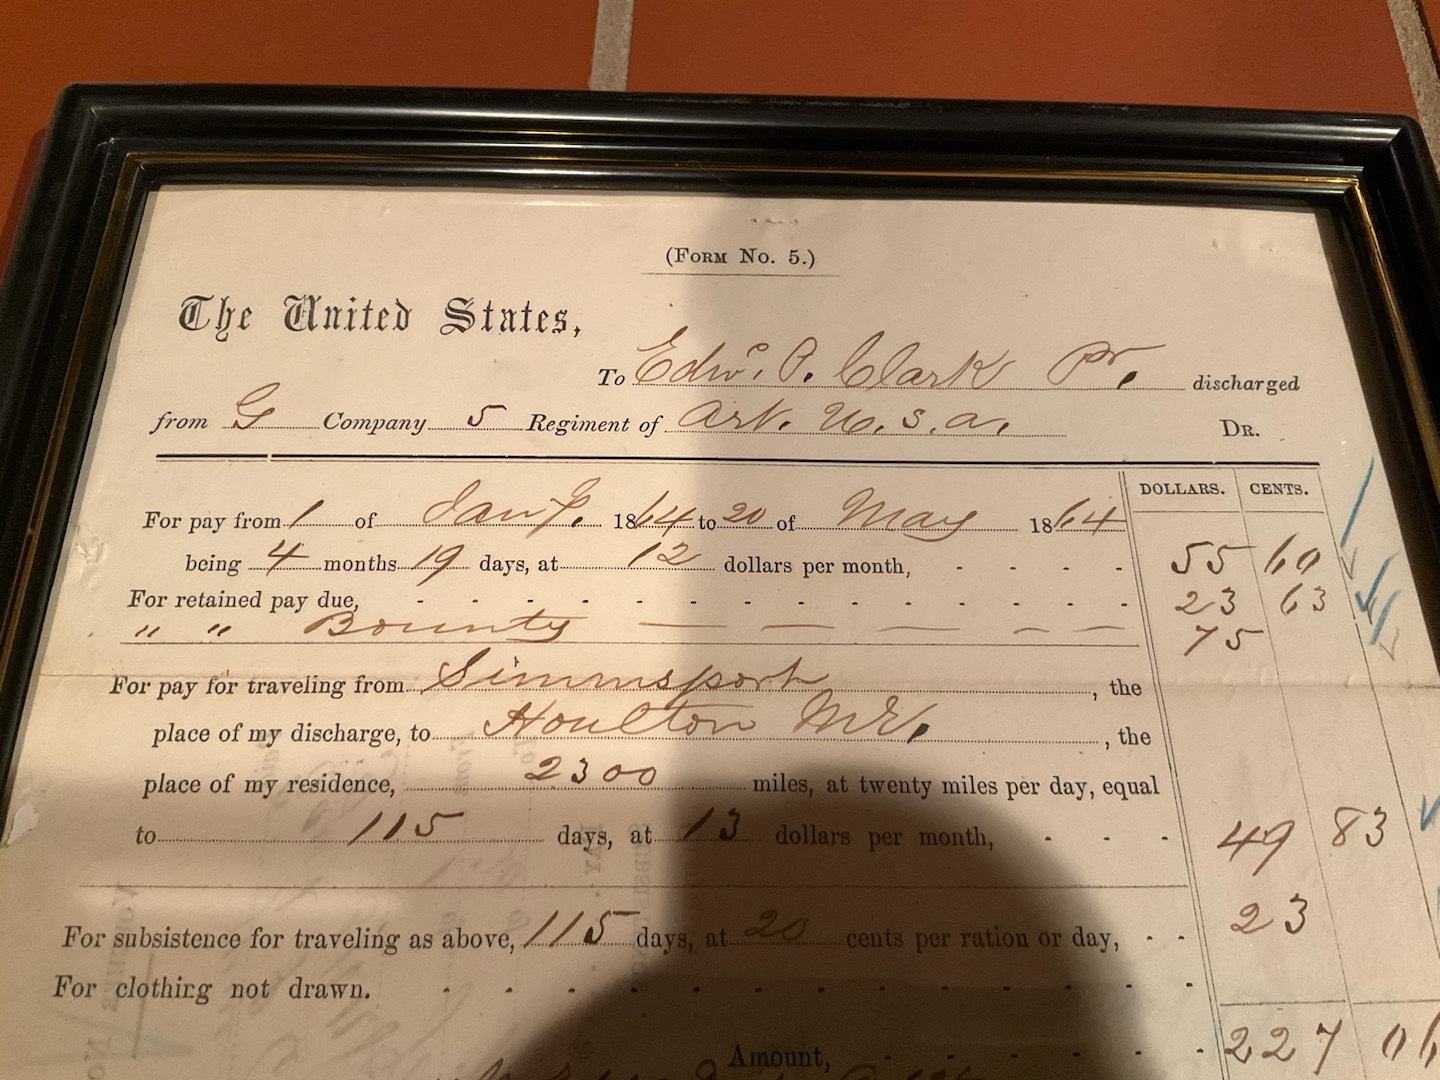 (FORM NO. 5.)
The United States,
To Edwd. P. Clark Pr. discharged
from G Company 5 Regiment of Art. U.S.A. DR.
DOLLARS. CENTS.
For pay from 1 of Jany. 1864 to 20 of May 1864
being 4 months 19 days, at 12 dollars per month, - - - - 55 60
For retained pay due, - - - - - - - - - - - - - - 23 63
" " Bounty — — — — — 75
For pay for traveling from Simmsport, the
place of my discharge, to Houlton ME., the
place of my residence, 2300 miles, at twenty miles per day, equal
to 115 days, at 13 dollars per month, - - - 49 83
For subsistence for traveling as above, 115 days, at 20 cents per ration or day, - - 23
For clothing not drawn. - - - - - - - - - - - -
Amount, - - - - - - 227 06